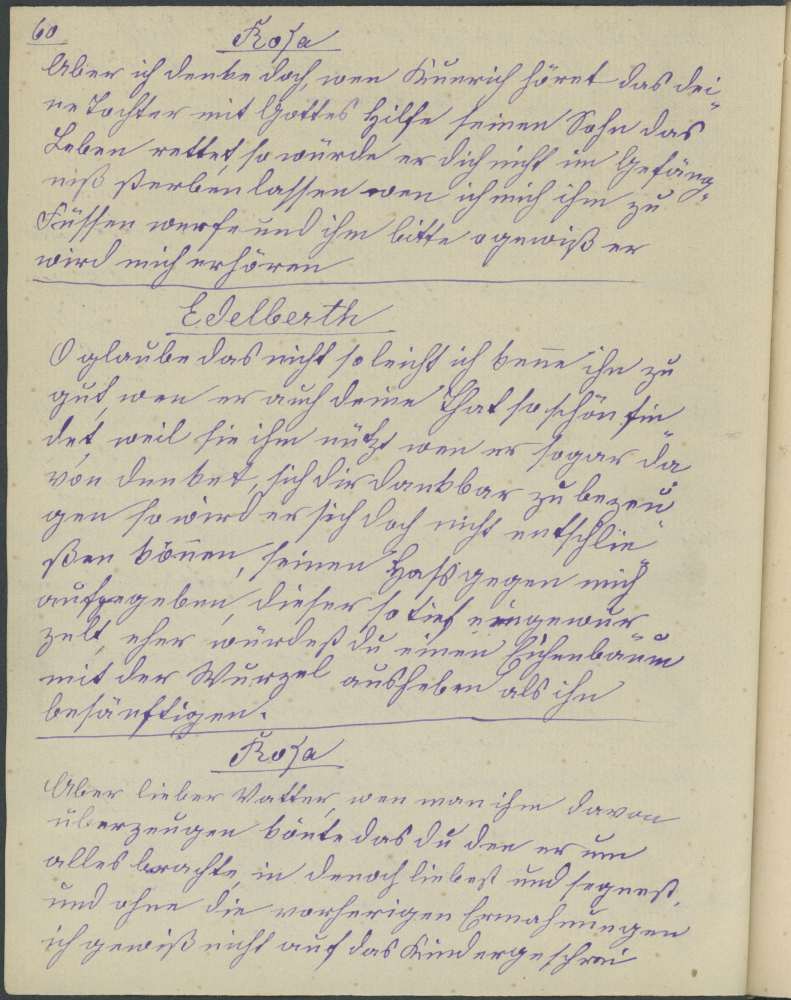 60
Rosa
Aber ich denke doch, wen Kunrich höret das dei„
ne Tochter mit Gottes Hilfe seinen Sohn das
Leben rettet, so würde er dich nicht im Gefäng„
niß sterben lassen wen ich mich ihm zu
Füssen werfe und ihm bitte o gewiß er
wird mich erhören
Edelberth
O glaube das nicht so leicht ich kenne ihn zu
gut, wen er auch deine That so schön fin„
det, weil sie ihm nützt wen er sogar da„
von denket, sich dir dankbar zu bezeu„
gen so wird er sich doch nicht entschlie„
ßen können, seinen Hass gegen mich
aufgegeben, dieser so tief eingewur„
zelt, eher würdest du einen Eichenbaum
mit der Wurzel ausheben als ihn
besänftigen.
Rosa
Aber lieber Vatter, wen man ihm davon
überzeugen könte das du den er um
alles brachte, in denoch liebest und segnest,
und ohne die vorherigen Ermahnungen
ich gewiß nicht auf das Kindergeschrei